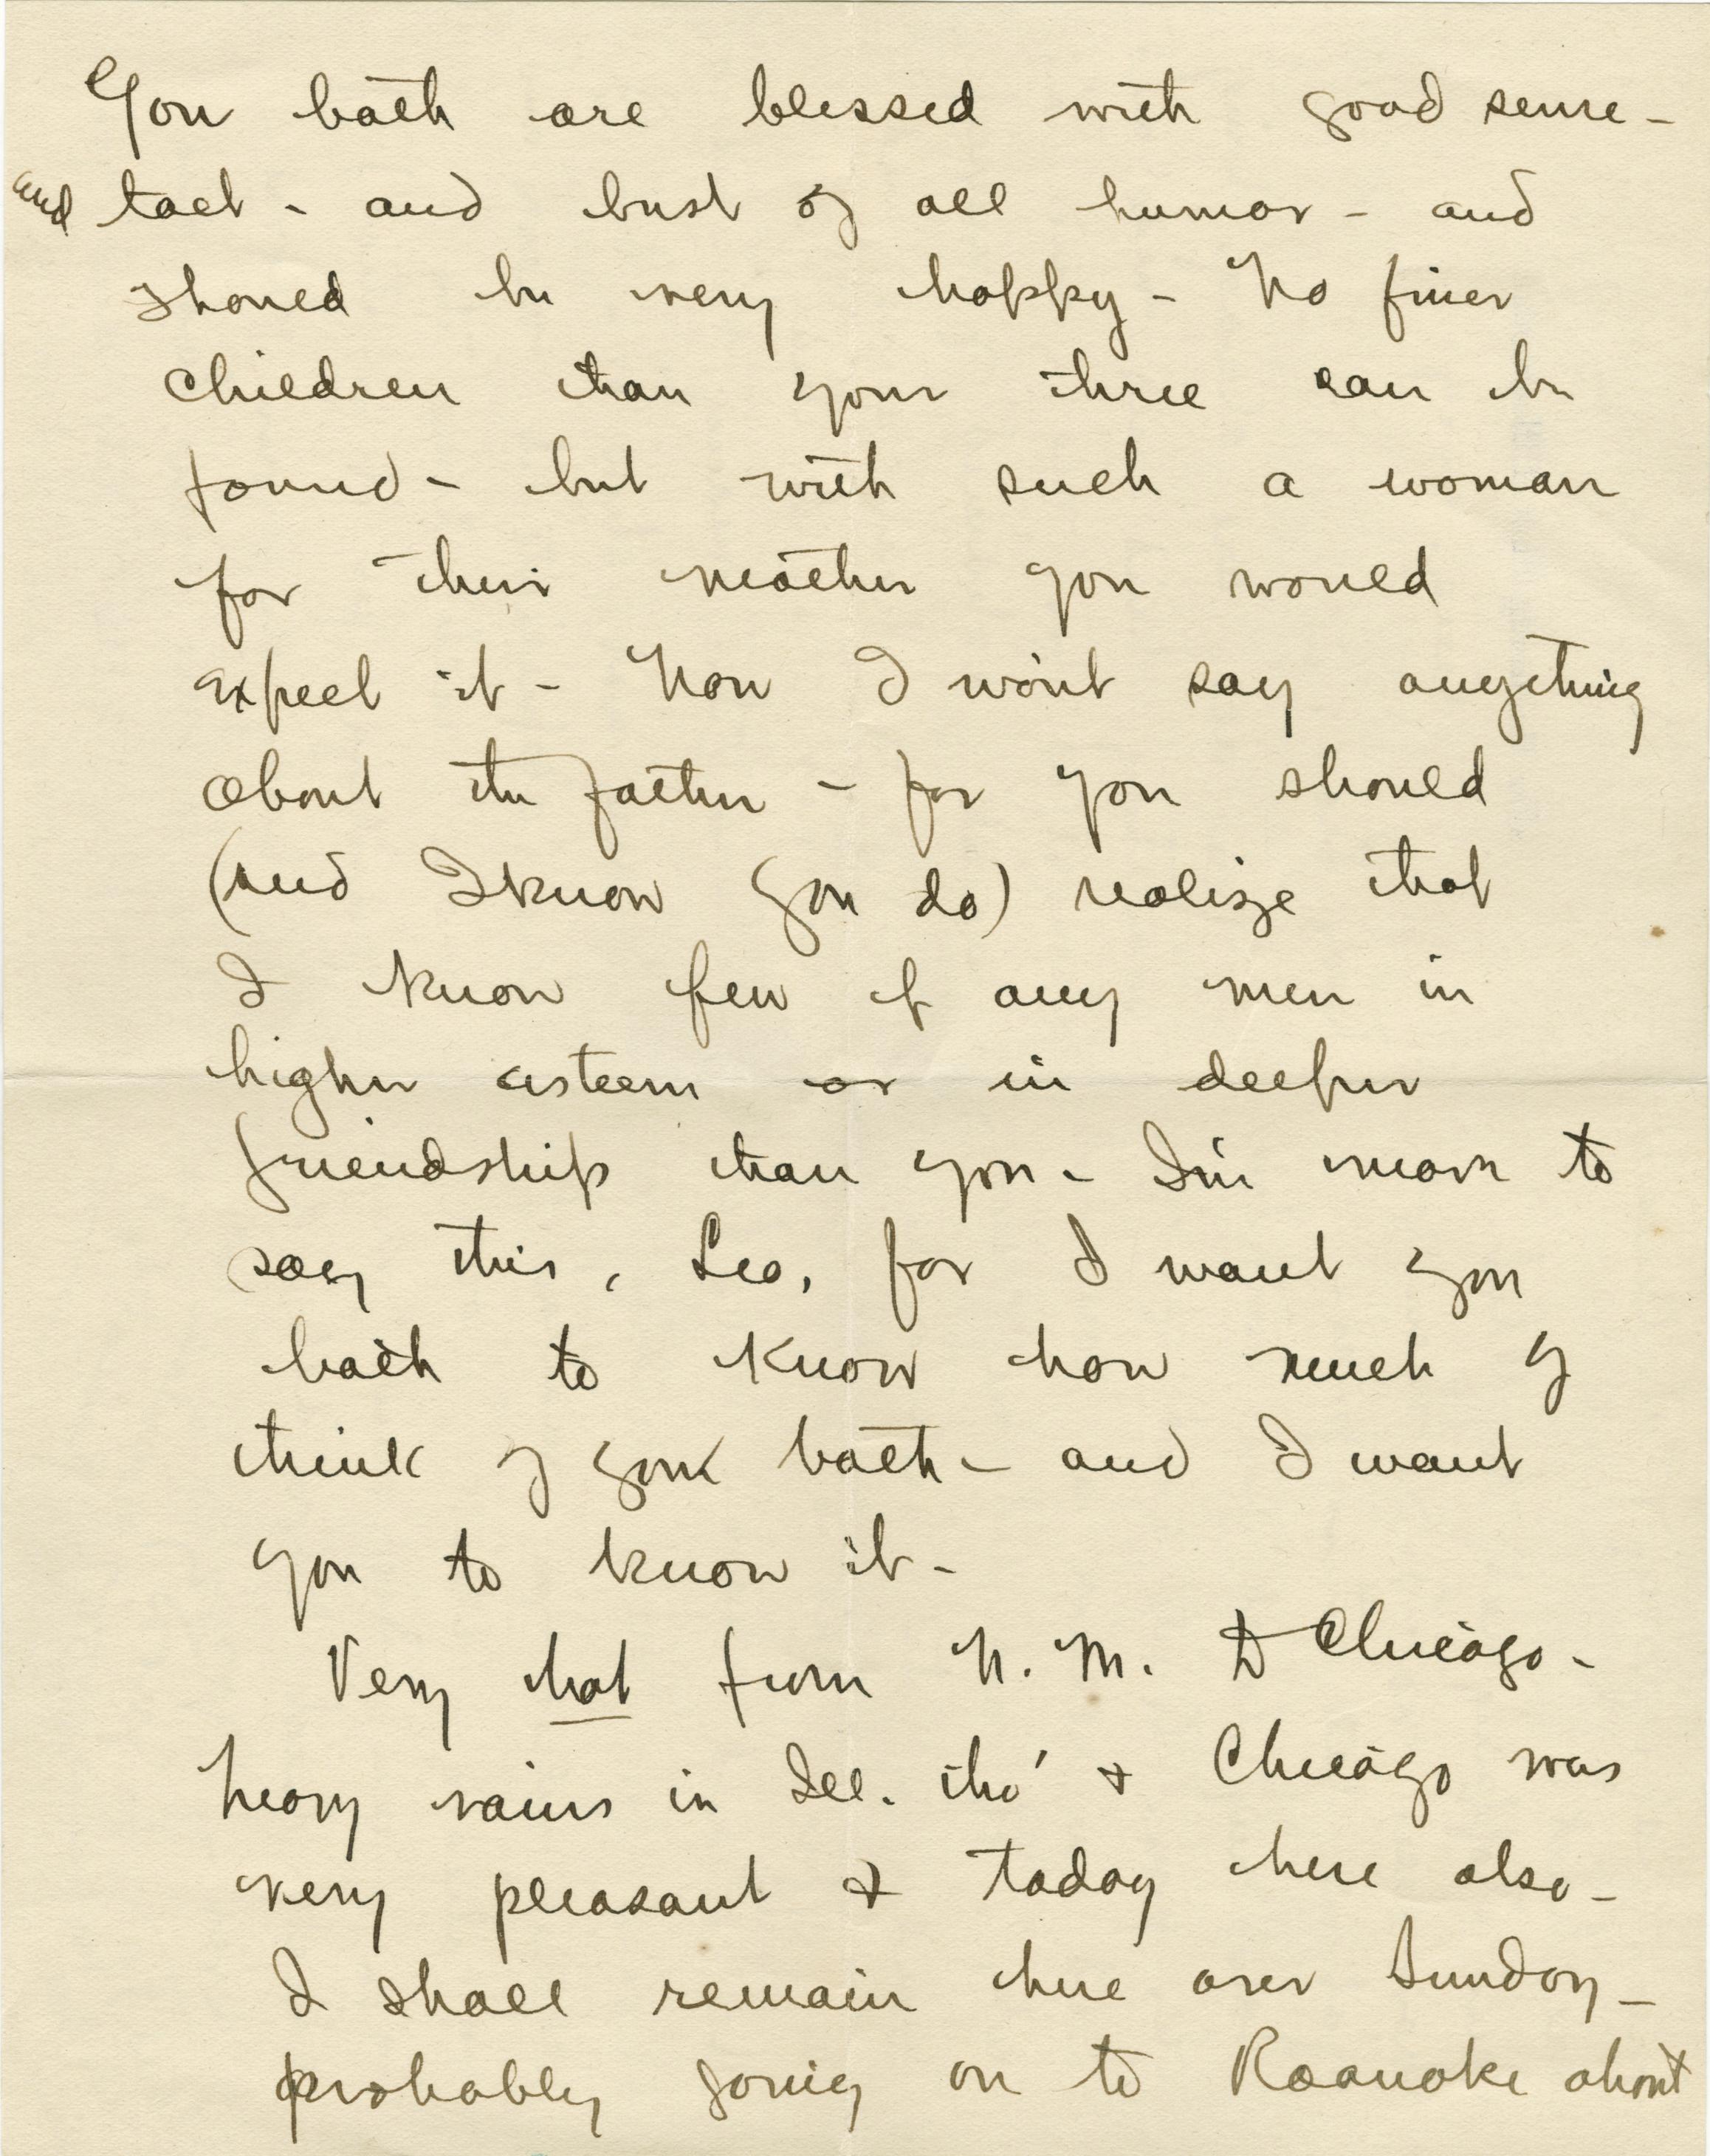 You both are blessed with good sense -
and tact - and best of all humor - and
should be very happy - No finer
children than your three can be
found - but with such a woman
for their mother you would
expect it - Now I won't say anything
about the father - for you should
(and I know you do) realize that
I know few if any men in
higher esteem or in deeper
friendship than you - I'm to
say this, Leo, for I want you
both to know how much I
think of you both - and I want
you to know it -
Very hot from N. M. to Chicago -
heavy rains in Ill. tho' & Chicago was
very pleasant & today here also -
I shall remain here over Sunday -
probably going on to Roanoke about